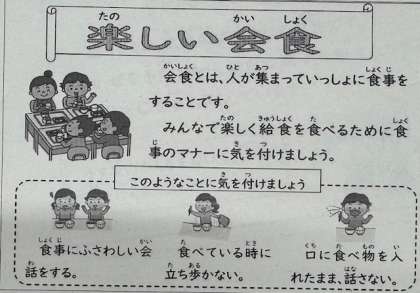 楽しい会食
会食とは、人が集まっていっしょに食事を
することです。
みんなで楽しく給食を食べるために食
事のマナーに気を付けましょう。
このようなことに気を付けましょう
食事にふさわしい会
話をする。
食べている時に
立ち歩かない。
口に食べ物を入
れたまま、話さない。